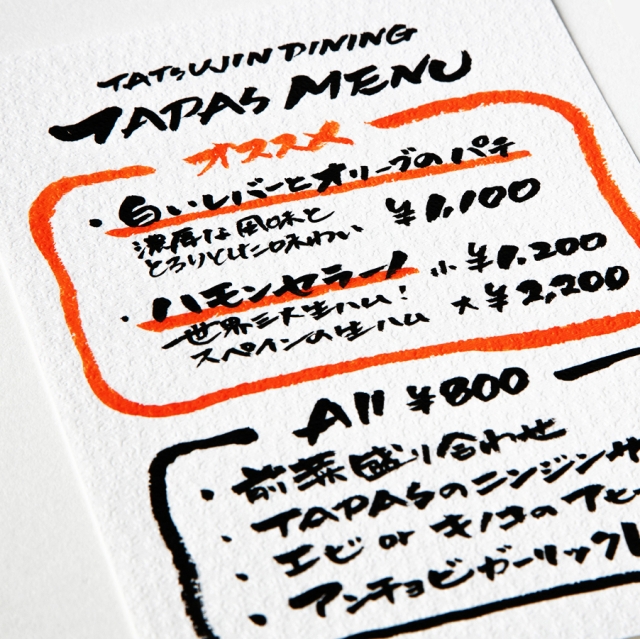 TATSUJIN DINING
TAPAS MENU
オススメ
・白いレバーとオリーブのパテ
濃厚な風味と
とろりとした味わい
¥1,100
・ハモンセラーノ
小 ¥1,200
世界三大生ハム!
大 ¥2,200
スペインの生ハム
All ¥800
・前菜盛り合わせ
・TAPASのニンジンサ
・エビ or キノコのアヒー
・アンチョビガーリック